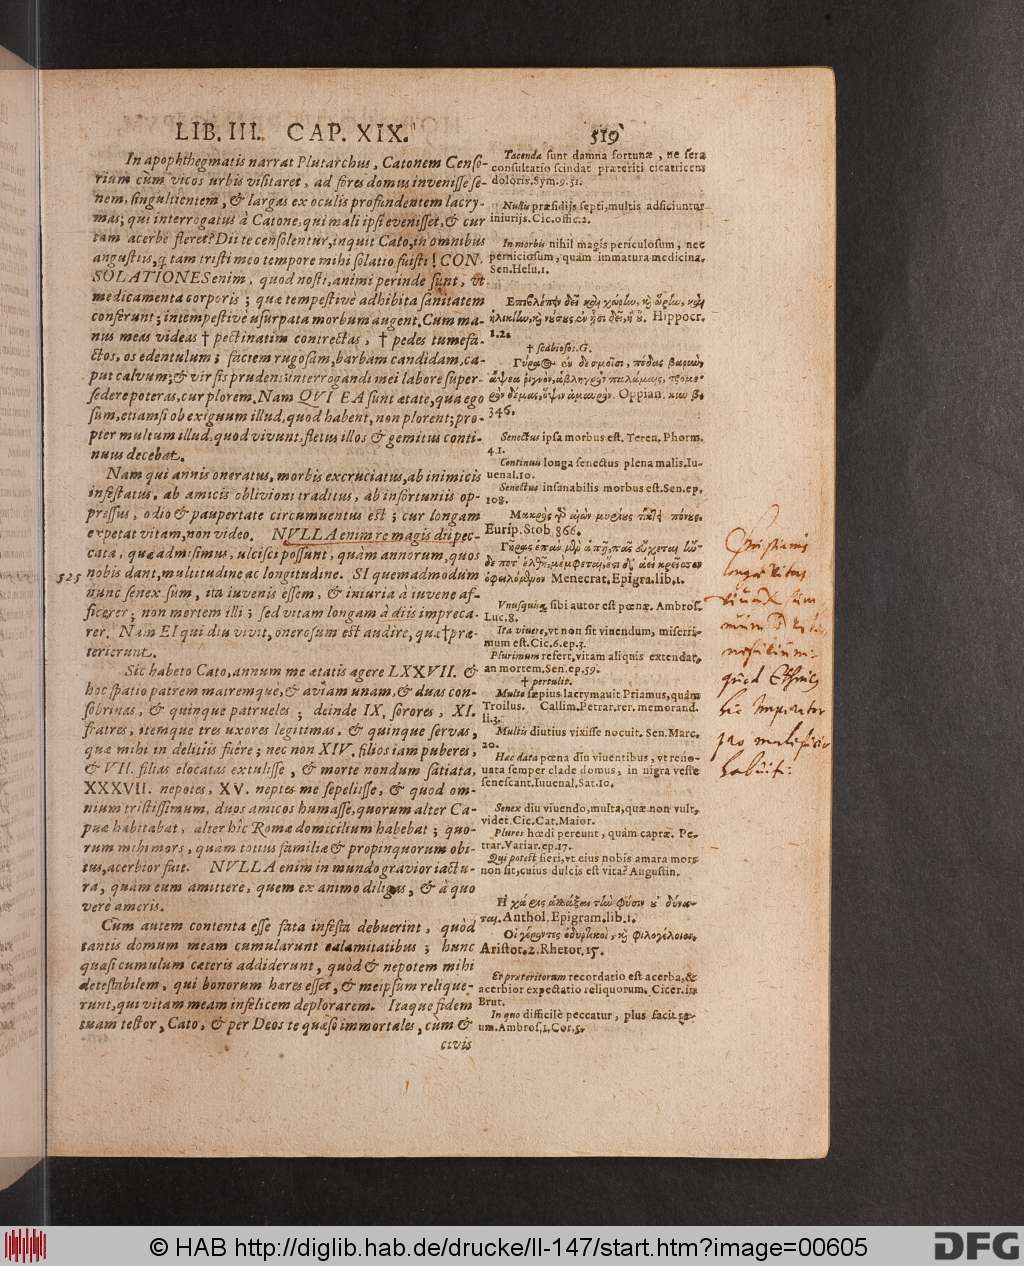 LIB. III. CAP. XIX.
519
In apophthegmatis narrat Plutarchus, Catonem Censo-
rium cùm vicos urbis visitaret, ad fores domus invenisse se-
nem, singultientem, & largas ex oculis profundentem lacry-
mas; qui interrogatus à Catone, qui mali ipsi evenisset, & cur
tam acerbè fleret? Dii te consolentur, inquit Cato, in omnibus
angustiis, q tam tristi meo tempore mihi solatio fuisti! CON-
SOLATIONES enim, quod nosti, animi perinde sunt, ut
medicamenta corporis; quæ tempestivè adhibita sanitatem
conferunt; intempestivè usurpata morbum augent. Cum ma-
nus meas videas † pectinatim contrectas, † pedes tumefa-
ctos, os edentulum; faciem rugosam, barbam candidam, ca-
put calvum; & vir sis prudens: interrogandi mei labore super-
sedere poteras, cur plorem. Nam QUI EA sunt ætate, qua ego
sum, etiamsi ob exiguum illud, quod habent, non plorent; pro-
pter multum illud, quod vivunt, fletus illos & gemitus conti-
nuus decebat.
Nam qui annis oneratus, morbis excruciatus, ab inimicis
infestatus, ab amicis oblivioni traditus, ab infortuniis op-
pressus, odio & paupertate circumventus est; cur longam
expetat vitam, non video. NVLLA enim re magis dii pec-
cata, quæ admisimus, ulcisci possunt, quàm annorum, quos
525
nobis dant, multitudine ac longitudine. SI quemadmodum
nunc senex sum, ita iuvenis essem, & iniuria à iuvene af-
ficerer; non mortem illi; sed vitam longam à diis impreca-
rer. Nam EI qui diu vivit, onerosum est audire, quæ † præ-
terierunt.
Sic habeto Cato, annum me ætatis agere LXXVII. &
hoc spatio patrem matremque, & aviam unam, & duas con-
sobrinas, & quinque patrueles; deinde IX, sorores, XI.
fratres, itemque tres uxores legitimas, & quinque servas,
quæ mihi in delitiis fuêre; nec non XIV. filios iam puberes,
& VII. filias elocatas extulisse, & morte nondum satiata,
XXXVII. nepotes, XV. neptes me sepeliisse, & quod om-
nium tristissimum, duos amicos humasse, quorum alter Ca-
puæ habitabat, alter hîc Romæ domicilium habebat; quo-
rum mihi mors, quàm totius familiæ & propinquorum obi-
tus, acerbior fuit. NVLLA enim in mundo gravior iactu-
ra, quàm eum amittere, quem ex animo diligas, & à quo
verè ameris.
Cum autem contenta esse fata infesta debuerint, quòd
tantis domum meam cumularunt calamitatibus; hunc
quasi cumulum cæteris addiderunt, quòd & nepotem mihi
detestabilem, qui bonorum hæres esset, & meipsum relique-
runt, qui vitam meam infelicem deplorarem. Itaque fidem
tuam testor, Cato, & per Deos te quæso immortales, cùm &
civis
Tacenda sunt damna fortunæ, ne sera
consultatio scindat præteriti cicatricem
doloris. Sym. 9. 51.
Nullis præsidijs septi, multis adficiuntur
iniurijs. Cic. offic. 2.
In morbis nihil magis periculosum, nec
perniciosum, quàm immatura medicina.
Sen. Helu. 1.
Hippocr.
1. 2.
† scabiosos. G.
Oppian.
346.
Senectus ipsa morbus est. Teren. Phorm.
4. 1.
Continuis longa senectus plena malis. Iu-
uenal. 10.
Senectus insanabilis morbus est. Sen. ep.
108.
Eurip. Stob. 866.
Menecrat. Epigra. lib, 1.
Vnusquisq; sibi autor est pœnæ. Ambros.
Luc. 8.
Ita viuere, vt non sit viuendum, miserri-
mum est. Cic. 6. ep. 3.
Plurimum refert, vitam aliquis extendat,
an mortem. Sen. ep. 59.
† pertulit.
Multo sæpius lacrymauit Priamus, quàm
Troilus. Callim. Petrar. rer. memorand.
li. 3.
Multis diutius vixisse nocuit. Sen. Marc.
20.
Hac data pœna diu viuentibus, vt reno-
uata semper clade domus, in nigra veste
senescant. Iuuenal. Sat. 10.
Senex diu viuendo, multa, quæ non vult,
videt. Cic. Cat. Maior.
Plures hœdi pereunt, quàm capræ. Pe-
trar. Variar. ep. 17.
Qui potest fieri, vt eius nobis amara mors
non sit, cuius dulcis est vita? Augustin.
Anthol. Epigram. lib. 1.
Aristot. 2. Rhetor. 15.
Et præteritorum recordatio est acerba, &
acerbior expectatio reliquorum. Cicer. in
Brut.
In quo difficilè peccatur, plus facit re-
um. Ambros. 1. Cor. 5.
Christianis
longa vitae
hic Imperator
pro maleficio
habuit:
© HAB http://diglib.hab.de/drucke/ll-147/start.htm?image=00605
DFG